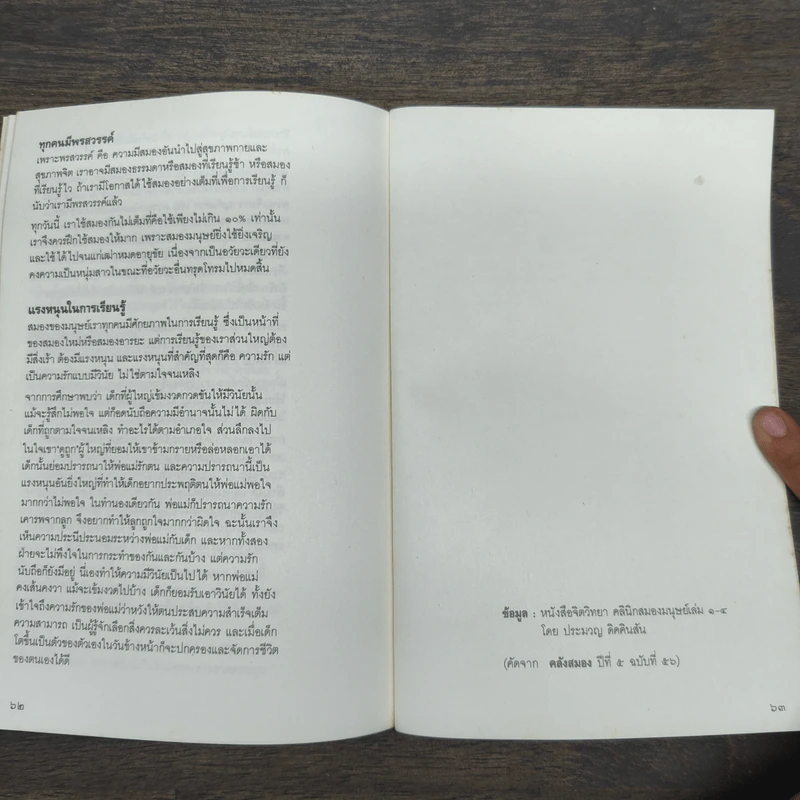 ทุกคนมีพรสวรรค์
เพราะพรสวรรค์ คือ ความมีสมองอันนำไปสู่สุขภาพกายและ
สุขภาพจิต เราอาจมีสมองธรรมดาหรือสมองที่เรียนรู้ช้า หรือสมอง
ที่เรียนรู้ไว ถ้าเรามีโอกาสได้ใช้สมองอย่างเต็มที่เพื่อการเรียนรู้ ก็
นับว่าเรามีพรสวรรค์แล้ว
ทุกวันนี้ เราใช้สมองกันไม่เต็มที่คือใช้เพียงไม่เกิน ๑๐% เท่านั้น
เราจึงควรฝึกใช้สมองให้มาก เพราะสมองมนุษย์ยิ่งใช้ยิ่งเจริญ
และใช้ได้ไปจนแก่เฒ่าหมดอายุขัย เนื่องจากเป็นอวัยวะเดียวที่ยัง
คงความเป็นหนุ่มสาวในขณะที่อวัยวะอื่นทรุดโทรมไปหมดสิ้น
แรงหนุนในการเรียนรู้
สมองของมนุษย์เราทุกคนมีศักยภาพในการเรียนรู้ ซึ่งเป็นหน้าที่
ของสมองใหม่หรือสมองอารยะ แต่การเรียนรู้ของเราส่วนใหญ่ต้อง
มีสิ่งเร้า ต้องมีแรงหนุน และแรงหนุนที่สำคัญที่สุดก็คือ ความรัก แต่
เป็นความรักแบบมีวินัย ไม่ใช่ตามใจจนเหลิง
จากการศึกษาพบว่า เด็กที่ผู้ใหญ่เข้มงวดกวดขันให้มีวินัยนั้น
แม้จะรู้สึกไม่พอใจ แต่ก็อดนับถือความมีอำนาจนั้นไม่ได้ ผิดกับ
เด็กที่ถูกตามใจจนเหลิง ทำอะไรได้ตามอำเภอใจ ส่วนลึกลงไป
ในใจเขา"ดูถูก"ผู้ใหญ่ที่ยอมให้เขาข้ามกรายหรือล่อหลอกเอาได้
เด็กนั้นย่อมปรารถนาให้พ่อแม่รักตน และความปรารถนานี้เป็น
แรงหนุนอันยิ่งใหญ่ที่ทำให้เด็กอยากประพฤติตนให้พ่อแม่พอใจ
มากกว่าไม่พอใจ ในทำนองเดียวกัน พ่อแม่ก็ปรารถนาความรัก
เคารพจากลูก จึงอยากทำให้ลูกถูกใจมากกว่าผิดใจ ฉะนั้นเราจึง
เห็นความประนีประนอมระหว่างพ่อแม่กับเด็ก และหากทั้งสอง
ฝ่ายจะไม่พึงใจในการกระทำของกันและกันบ้าง แต่ความรัก
นับถือก็ยังมีอยู่ นี่เองทำให้ความมีวินัยเป็นไปได้ หากพ่อแม่
คงเส้นคงวา แม้จะเข้มงวดไปบ้าง เด็กก็ยอมรับเอาวินัยได้ ทั้งยัง
เข้าใจถึงความรักของพ่อแม่ว่าหวังให้ตนประสบความสำเร็จเต็ม
ความสามารถ เป็นผู้รู้จักเลือกสิ่งควรละเว้นสิ่งไม่ควร และเมื่อเด็ก
โตขึ้นเป็นตัวของตัวเองในวันข้างหน้าก็จะปกครองและจัดการชีวิต
ของตนเองได้ดี
๖๒
ข้อมูล : หนังสือจิตวิทยา คลินิกสมองมนุษย์เล่ม ๑-๔
โดย ประมวญ ดิคคินสัน
(คัดจาก คลังสมอง ปีที่ ๕ ฉบับที่ ๕๖)
๖๓